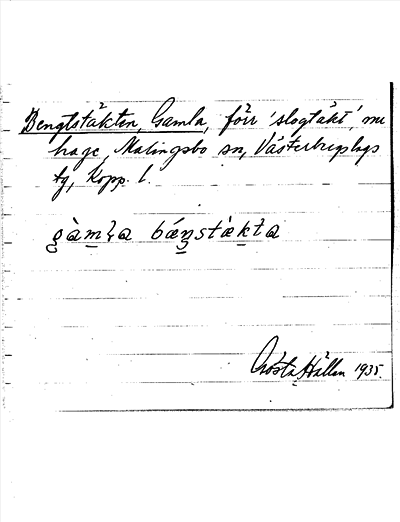 Bengtstäkten, Gamla, förr 'slogtäkt', nu
hage, Malingsbo sn, Västerbergslags
tg, Kopp. l.
gàmla bæŋstækta
Gösta Hällen 1935.